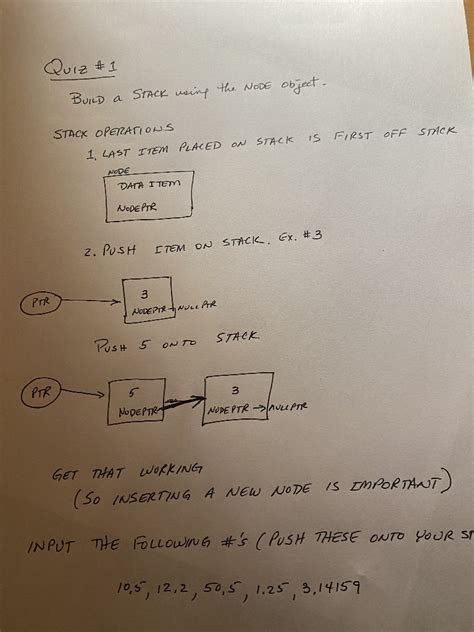 QUIZ #1
BUILD a STACK using the NODE object.
STACK OPERATIONS
1. LAST ITEM PLACED ON STACK IS FIRST OFF STACK
NODE
DATA ITEM
NODEPTR
2. PUSH ITEM ON STACK. EX. #3
PTR
3
NODEPTR → NULLPTR
PUSH 5 ONTO STACK
PTR
5
NODEPTR
3
NODEPTR → NULLPTR
GET THAT WORKING
(SO INSERTING A NEW NODE IS IMPORTANT)
INPUT THE FOLLOWING #'S (PUSH THESE ONTO YOUR ST
10.5, 12.2, 50.5, 1.25, 3.14159